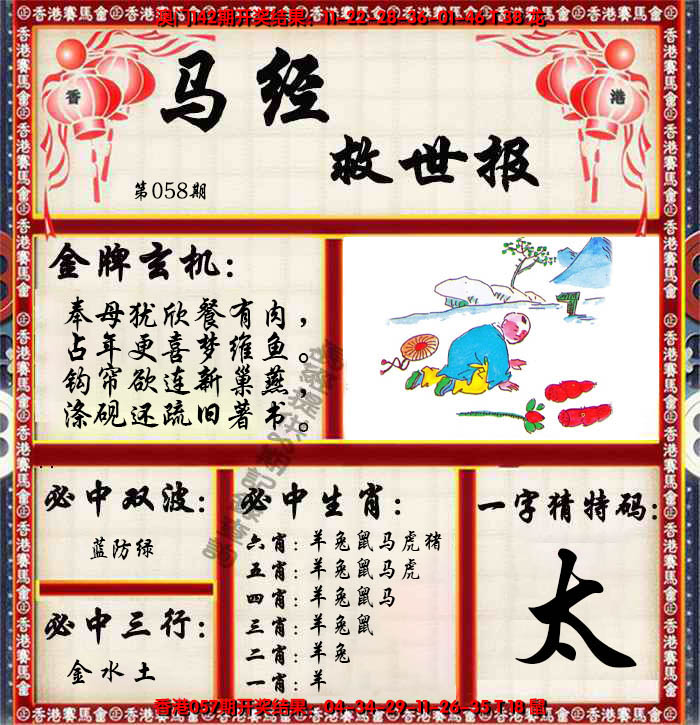 澳门142期开奖结果：11-22-28-36-01-46 T 38 龙
香 港
马经
救世报
第058期
金牌玄机：
奉母犹欣餐有肉，
占年更喜梦维鱼。
钩帘欲连新巢燕，
涤砚还疏旧著书。
必中双波：
蓝防绿
必中三行：
金水土
必中生肖：
六肖：羊兔鼠马虎猪
五肖：羊兔鼠马虎
四肖：羊兔鼠马
三肖：羊兔鼠
二肖：羊兔
一肖：羊
一字猜特码：
太
香港057期开奖结果：04-34-29-11-26-35 T 18 鼠
香港賽馬會